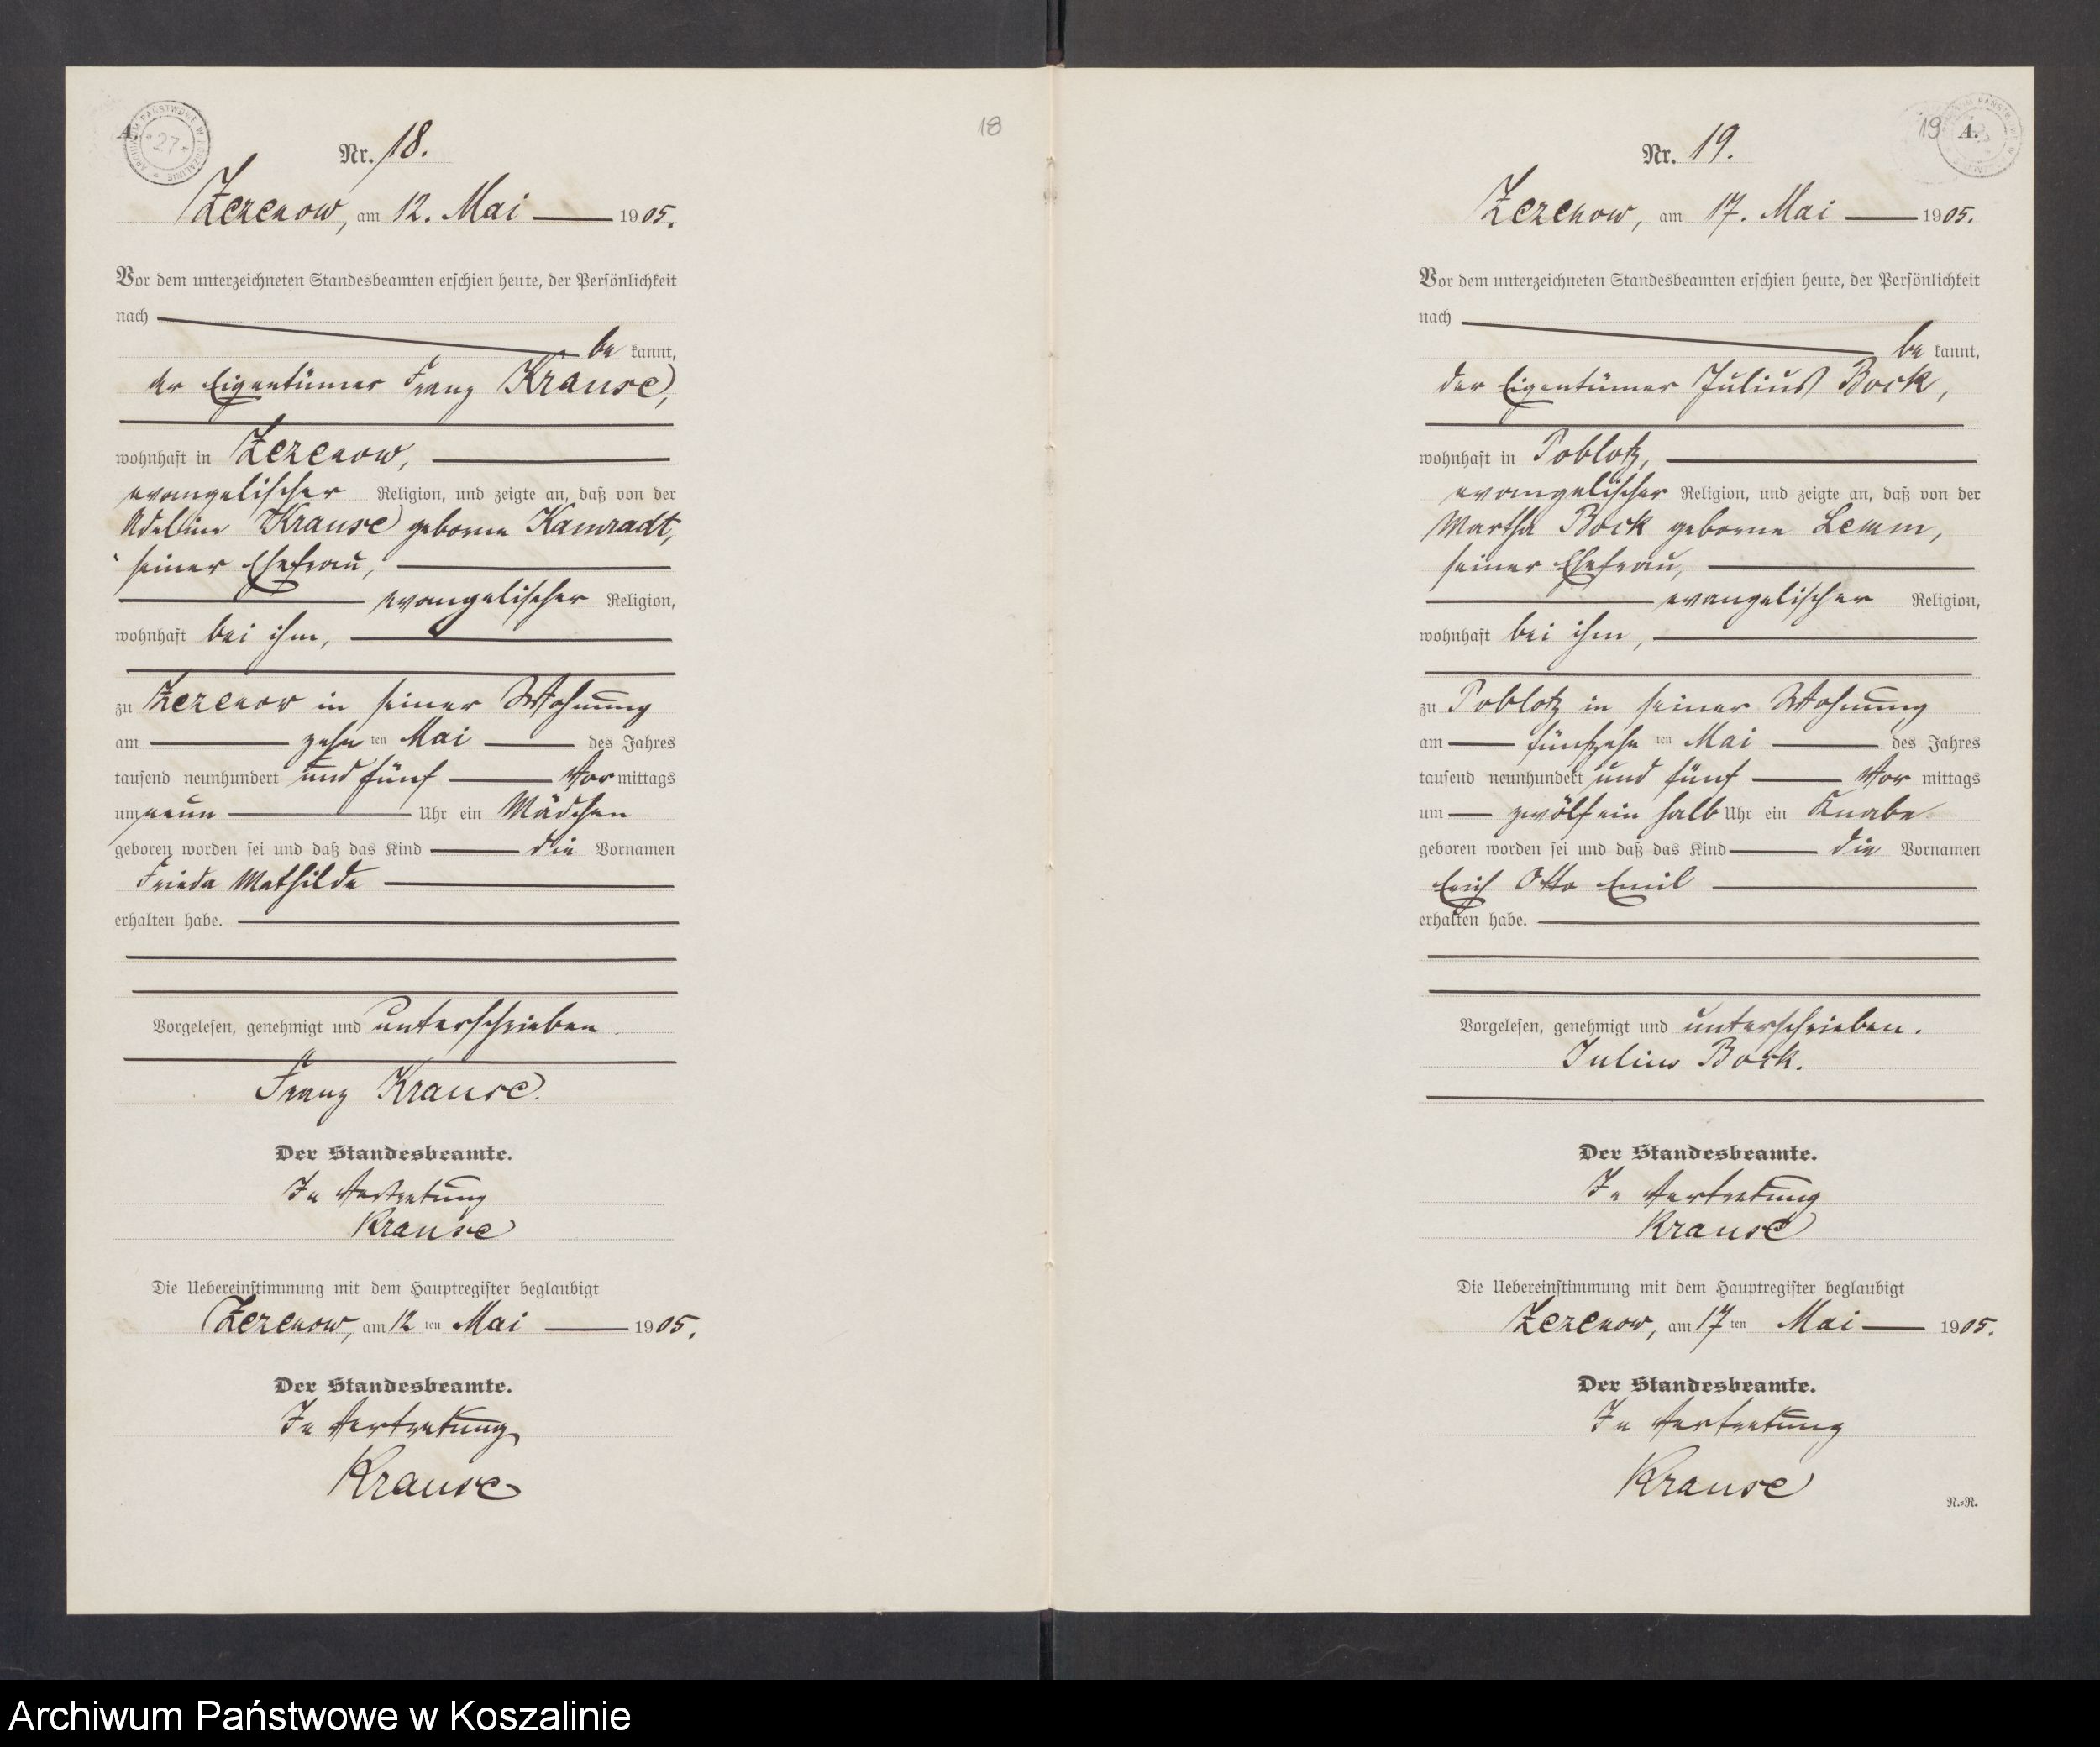 A.
ARCHIWUM PAŃSTWOWE W KOSZALINIE
* 27 *
18
Nr. 18.
Zezenow, am 12. Mai 1905.
Vor dem unterzeichneten Standesbeamten erschien heute, der Persönlichkeit
nach
be kannt,
der Eigentümer Franz Krause,
wohnhaft in Zezenow,
evangelischer Religion, und zeigte an, daß von der
Adeline Krause geborne Kamradt,
seiner Ehefrau,
evangelischer Religion,
wohnhaft bei ihm,
zu Zezenow in seiner Wohnung
am zehn ten Mai des Jahres
tausend neunhundert und fünf Vor mittags
um neun Uhr ein Mädchen
geboren worden sei und daß das Kind die Vornamen
Frieda Mathilde
erhalten habe.
Vorgelesen, genehmigt und unterschrieben.
Franz Krause.
Der Standesbeamte.
In Vertretung
Krause
Die Uebereinstimmung mit dem Hauptregister beglaubigt
Zezenow, am 12 ten Mai 1905.
Der Standesbeamte.
In Vertretung
Krause
19 A.
Nr. 19.
Zezenow, am 17. Mai 1905.
Vor dem unterzeichneten Standesbeamten erschien heute, der Persönlichkeit
nach
be kannt,
der Eigentümer Julius Bock,
wohnhaft in Poblotz,
evangelischer Religion, und zeigte an, daß von der
Martha Bock geborne Lemm,
seiner Ehefrau,
evangelischer Religion,
wohnhaft bei ihm,
zu Poblotz in seiner Wohnung
am fünfzehn ten Mai des Jahres
tausend neunhundert und fünf Vor mittags
um zwölf ein halb Uhr ein Knabe
geboren worden sei und daß das Kind die Vornamen
Erich Otto Emil
erhalten habe.
Vorgelesen, genehmigt und unterschrieben.
Julius Bock.
Der Standesbeamte.
In Vertretung
Krause
Die Uebereinstimmung mit dem Hauptregister beglaubigt
Zezenow, am 17 ten Mai 1905.
Der Standesbeamte.
In Vertretung
Krause
N.=R.
Archiwum Państwowe w Koszalinie